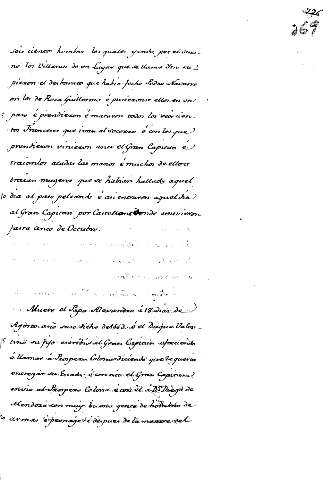 726
269
seis cientos hombres los quales yendo por el cami-
no los Villanos de un Lugar que se llama
pieron el desbarato que habia hecho Pedro Navarro
en los de Rosa Guillermo é pusieronse ellos en un
paso é prendieron é mataron todos los seis cien-
tos Franceses que ivan al socorro é con los que
prendieron vinieron ante el Gran Capitan é
traianlos atadas las manos é muchos de ellos
traian mugeres que se habian hallado aquel
dia al paso peleando é asi entraron aquel dia
al Gran Capitan por Castellone donde estuvieron
fasta cinco de Octubre.
Murio el Papa Alexandro á 18 dias de
Agosto año suso dicho de 1503. é el Duque Valen-
tino su fijo escribió al Gran Capitan ofreciendo
á llamar á Prospero Colona diciendo que le queria
entregar su Estado, é con esto el Gran Capitan
envio al Prospero Colona é con él á Dn. Diego de
Mendoza con muy buena gente de hombres de
armas é peonage é despues de la muerte del